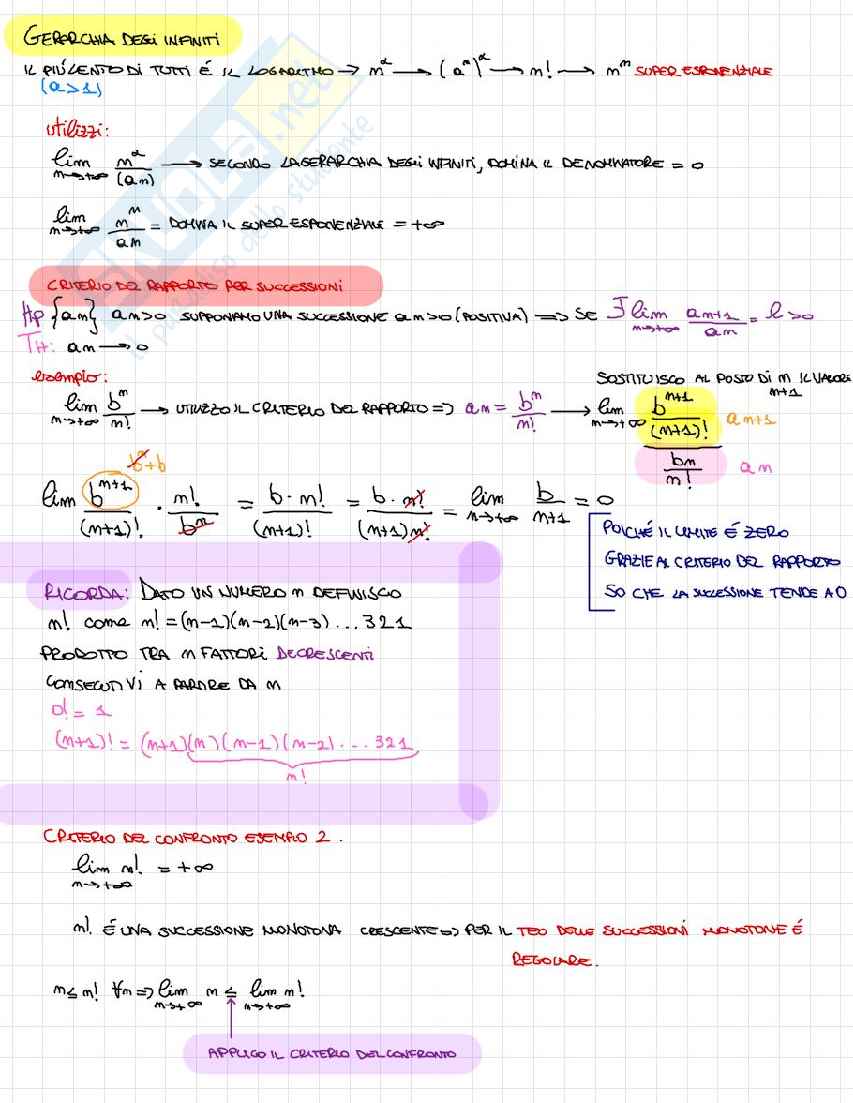 GERARCHIA DEGLI INFINITI
IL PIÚ LENTO DI TUTTI É IL LOGARITMO → n^α → (a^n)^α → n! → n^n SUPER ESPONENZIALE
(a>1)
utilizzi:
lim n→+∞ n^α/(an) → SECONDO LA GERARCHIA DEGLI INFINITI, DOMINA IL DENOMINATORE = 0
lim n→+∞ n^n/an = DOMINA IL SUPER ESPONENZIALE = +∞
CRITERIO DEL RAPPORTO PER SUCCESSIONI
Hp {an} an>0 SUPPONIAMO UNA SUCCESSIONE an>0 (POSITIVA) => SE ∃ lim n→+∞ an+1/an = l>0
TH: an → 0
esempio:
SOSTITUISCO AL POSTO DI n IL VALORE n+1
lim n→+∞ b^n/n! → UTILIZZO IL CRITERIO DEL RAPPORTO => an = b^n/n! → lim n→+∞ b^n+1/(n+1)! an+1
bn/n! an
b^n+b
lim b^n+1/(n+1)! · n!/b^n = b·n!/(n+1)! = b·n!/(n+1)n! = lim n→+∞ b/n+1 = 0
POICHÉ IL LIMITE É ZERO
GRAZIE AL CRITERIO DEL RAPPORTO
SO CHE LA SUCCESSIONE TENDE A 0
RICORDA: DATO UN NUMERO n DEFINISCO
n! come n! = (n-1)(n-2)(n-3)...321
PRODOTTO TRA n FATTORI DECRESCENTI
CONSECUTIVI A PARTIRE DA n
0! = 1
(n+1)! = (n+1)(n)(n-1)(n-2)...321
n!
CRITERIO DEL CONFRONTO ESEMPIO 2.
lim n→+∞ n! = +∞
n! É UNA SUCCESSIONE MONOTONA CRESCENTE => PER IL TEO DELLE SUCCESSIONI MONOTONE É
REGOLARE.
n≤n! ∀n => lim n→+∞ n ≤ lim n→+∞ n!
APPLICO IL CRITERIO DEL CONFRONTO
SKUOLA.net
il paradiso dello studente